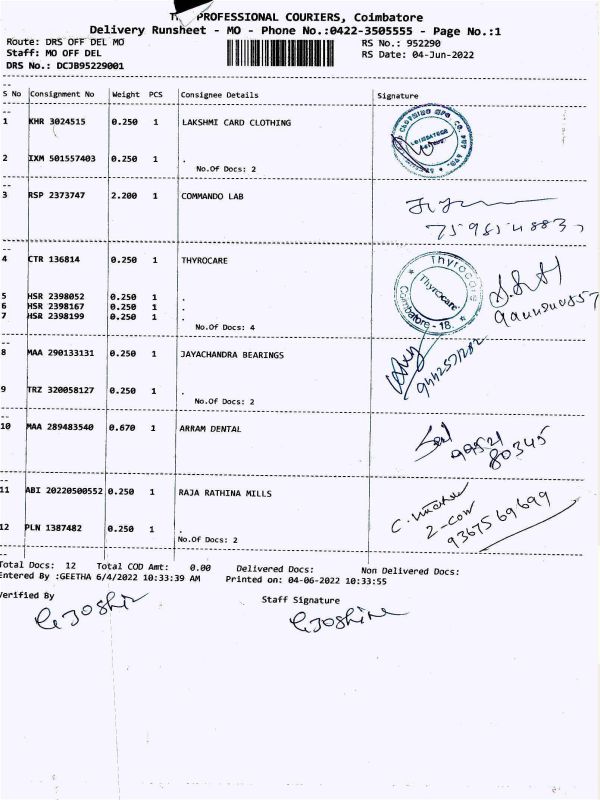 PROFESSIONAL COURIERS, Coimbatore
Delivery Runsheet - MO - Phone No.:0422-3505555 - Page No.:1
Route: DRS OFF DEL MO RS No.: 952290
Staff: MO OFF DEL RS Date: 04-Jun-2022
DRS No.: DCJB95229001
S No Consignment No Weight PCS Consignee Details Signature
1 KHR 3024515 0.250 1 LAKSHMI CARD CLOTHING
2 IXM 501557403 0.250 1 .
No.Of Docs: 2
3 RSP 2373747 2.200 1 COMMANDO LAB
4 CTR 136814 0.250 1 THYROCARE
Thyrocare
Thyrocare
Coimbatore - 18.
5 HSR 2398052 0.250 1 .
6 HSR 2398167 0.250 1 .
7 HSR 2398199 0.250 1 .
No.Of Docs: 4
8 MAA 290133131 0.250 1 JAYACHANDRA BEARINGS
9 TRZ 320058127 0.250 1 .
No.Of Docs: 2
10 MAA 289483540 0.670 1 ARRAM DENTAL
99521
80345
11 ABI 20220500552 0.250 1 RAJA RATHINA MILLS
9367569699
12 PLN 1387482 0.250 1 .
No.Of Docs: 2
Total Docs: 12 Total COD Amt: 0.00 Delivered Docs: Non Delivered Docs:
Entered By :GEETHA 6/4/2022 10:33:39 AM Printed on: 04-06-2022 10:33:55
Verified By Staff Signature